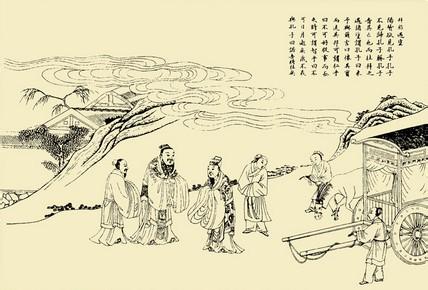 拜胙遇塗
陽貨欲見孔子孔子
不見歸孔子豚孔子
時其亡也而往拜之
遇諸塗謂孔子曰來
予與爾言曰懷其寶
而迷其邦可謂仁乎
曰不可好從事而亟
失時可謂智乎曰不
可日月逝矣歲不我
與孔子曰諾吾將仕矣